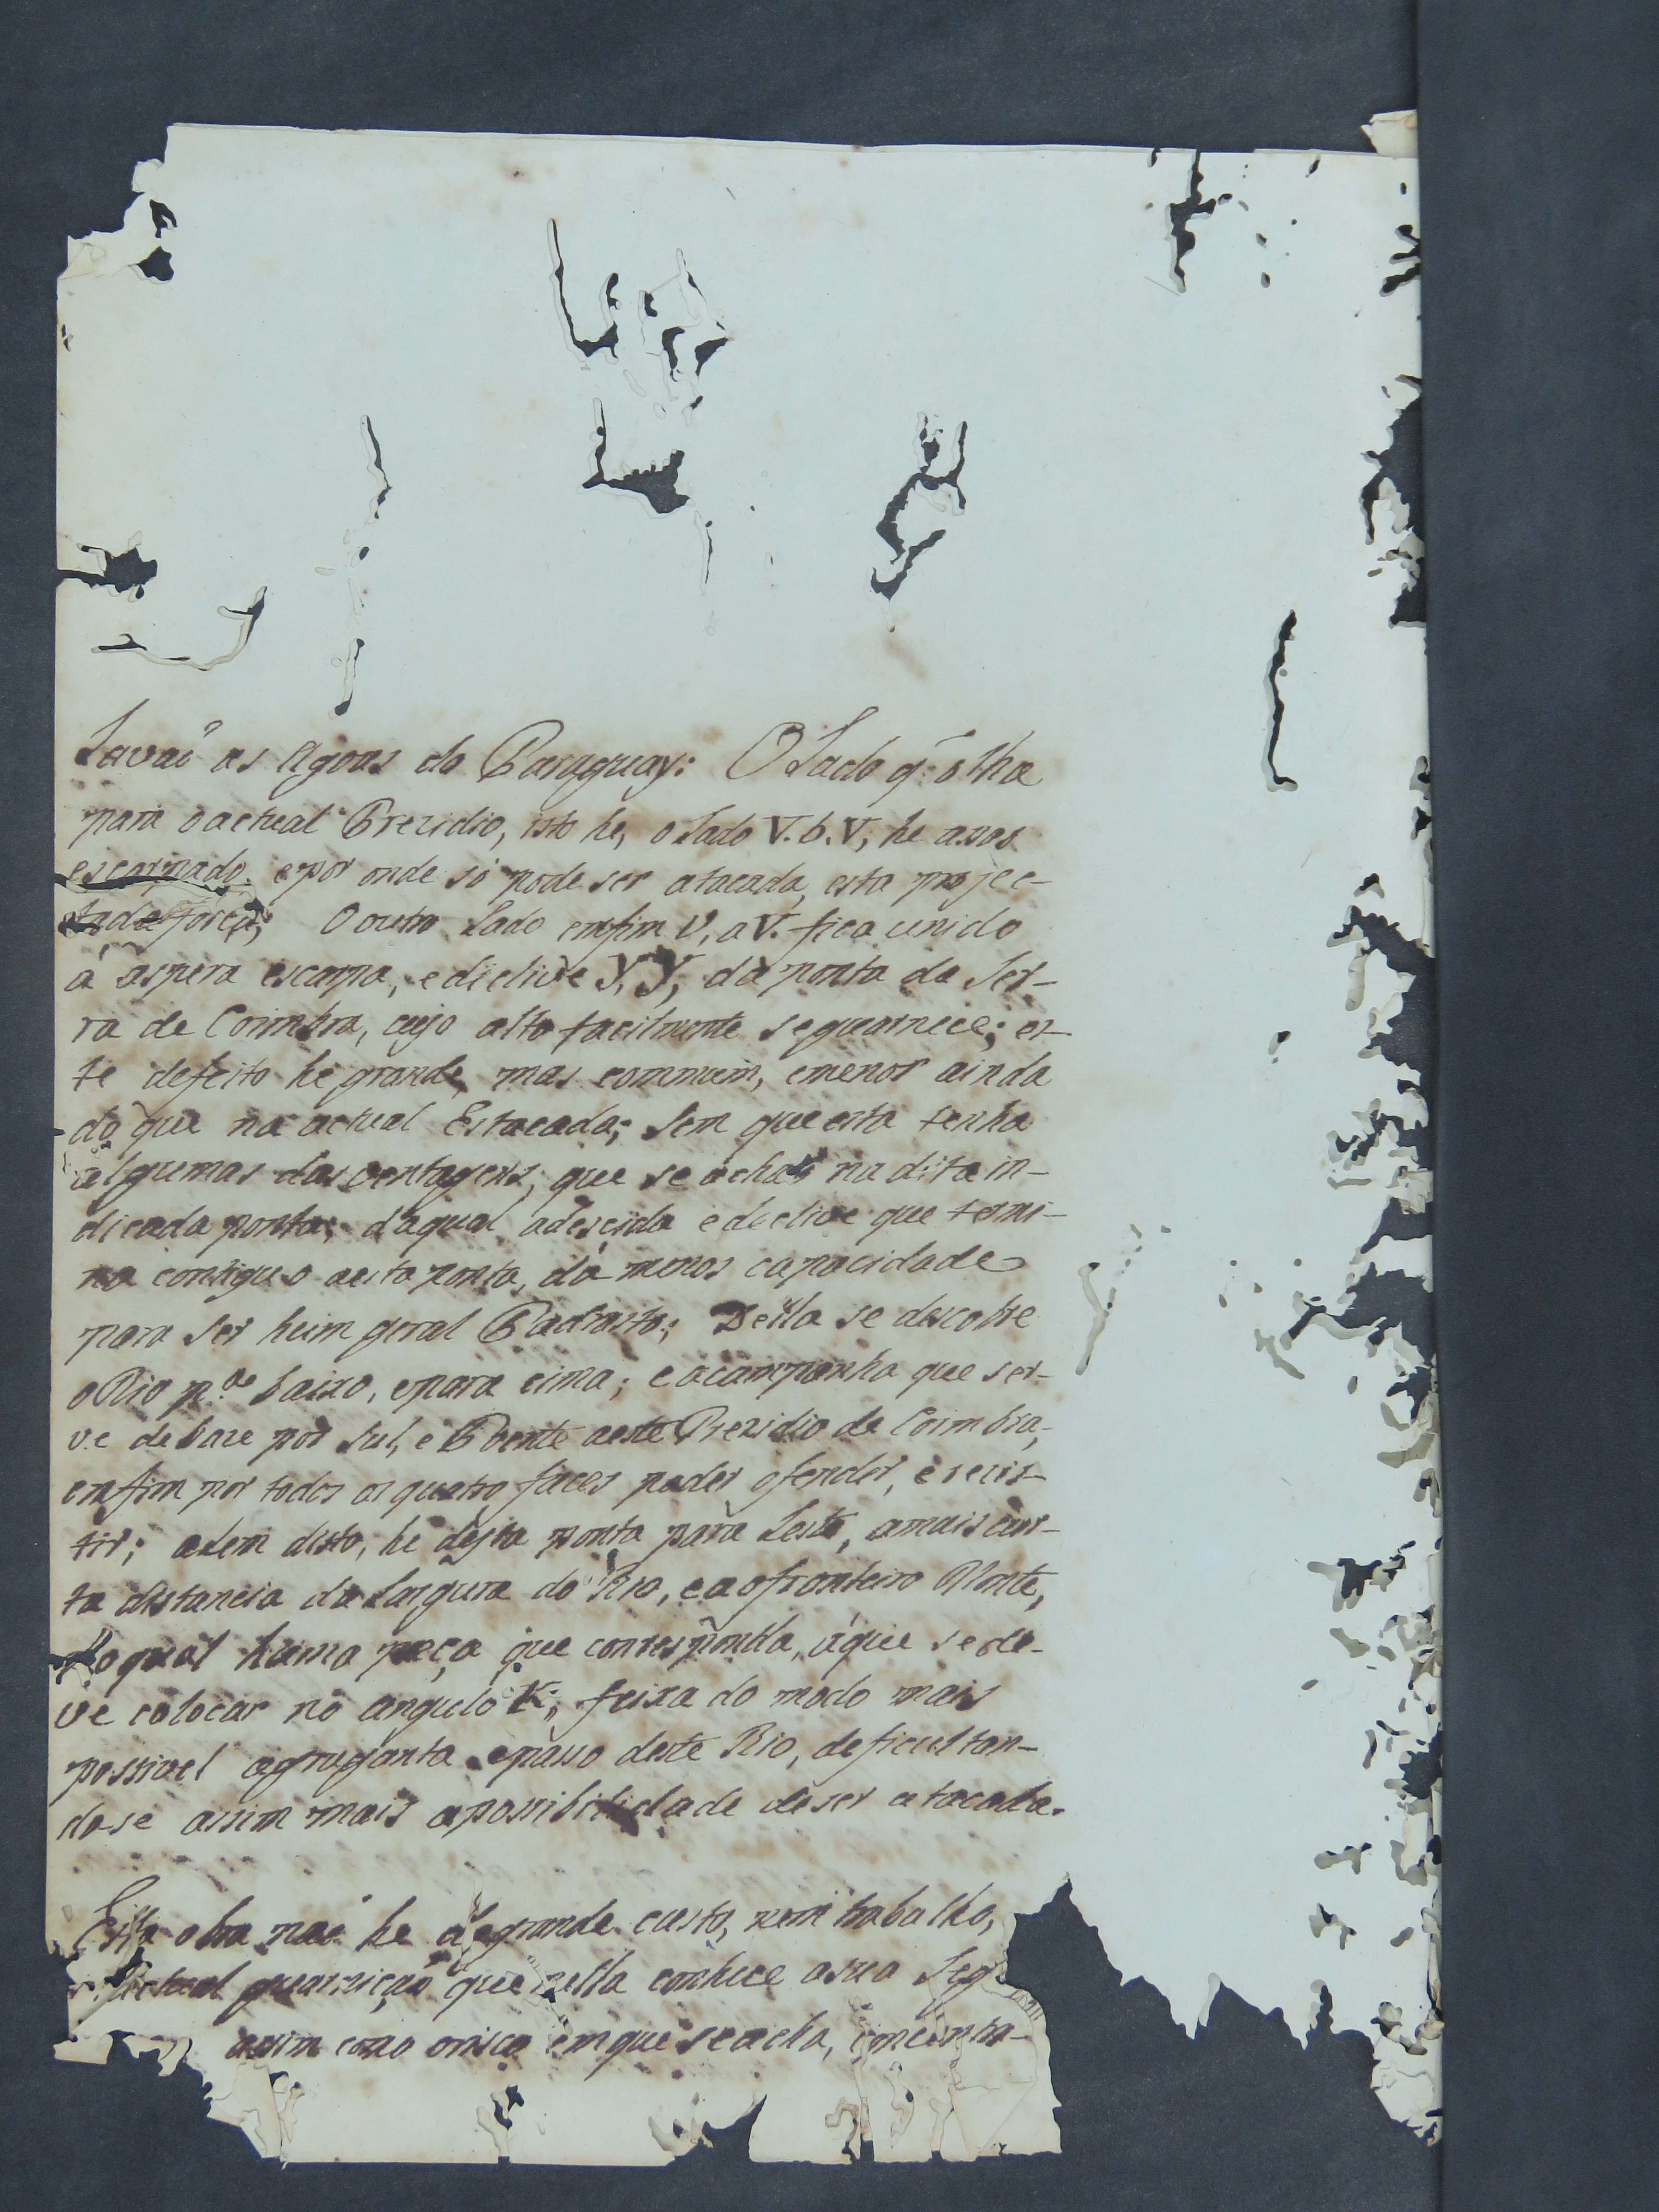 Lavaõ as Agoas do Paraguay: O Lado q̃ olha
para o actual Prezidio, isto he, o Lado V. b. V, he assás
escarpado e por onde só pode ser atacada, esta projec-
tada força; O outro Lado emfim V, a V. fica unido
á aspera escarpa, e declive Y, Y, da ponta da Ser-
ra de Coimbra, cujo alto facilmente se guarnece; es-
te defeito he grande, mas commum, e menor ainda
do que na actual Estacada; Sem que esta tenha
algumas das ventagens, que se achaõ na dita in-
dicada ponta; da qual a descida e declive que termi-
na contiguo a esta ponta, dá menos capacidade
para Ser hum geral Padrasto; Della se descobre
o Rio p.ª baixo, e para cima; e a campanha que ser-
ve de baze por Sul, e Poente a este Prezidio de Coimbra,
emfim por todos as quatro faces poder ofender, e rezis-
tir; alem disto, he desta ponta para Leste, a mais cur-
ta distancia da Largura do Rio, e ao fronteiro Monte,
No qual huma peça que corresponda, á que se de-
ve colocar no angulo K, feixa do modo mais
possivel a garganta e passo deste Rio, deficultan-
dose assim mais a possibilidade de ser atacada.
Esta obra naõ he de grande custo, nem trabalho,
actual guarniçaõ que nella conhece a sua Seg
assim como o risco em que se acha, emcontra-